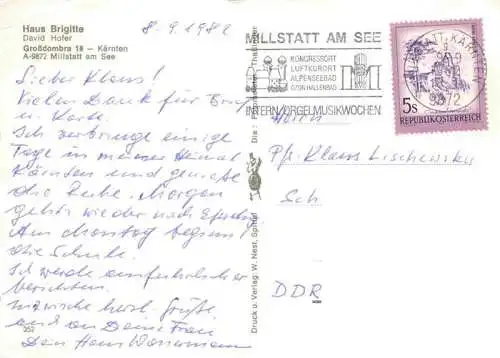 Haus Brigitte
David Hofer
Großdombra 18 — Kärnten
A-9872 Millstatt am See
8.9.1982
Lieber Klaus!
Vielen Dank für Brief
u. Karte.
Ich verbringe einige
Tage in meiner Heimat
Kärnten und genieße
die Ruhe. Morgen
geht's wieder nach
Am Montag beginnt
die Schule.
Ich werde ausführlicher
berichten.
Inzwischen herzl. Grüße
und an Deine Frau
Dein Hans Wassermann
252
Druck u. Verlag: W. Nest, Spittal
MILLSTATT AM SEE
KONGRESSORT
LUFTKURORT
ALPENSEEBAD
OZON HALLENBAD
INTERN. ORGELMUSIKWOCHEN
9872
5s
REPUBLIK ÖSTERREICH
Pfr. Klaus Lischewsky
Sch.
DDR